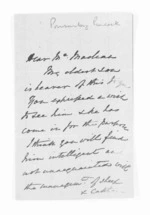 Dear Mr Maclean
My eldest son
is bearer of this
You expressed a wish
to see him & he has
come in for this purpose
I think you will find
him intelligent &
not unacquainted with
the management of sheep
& cattle